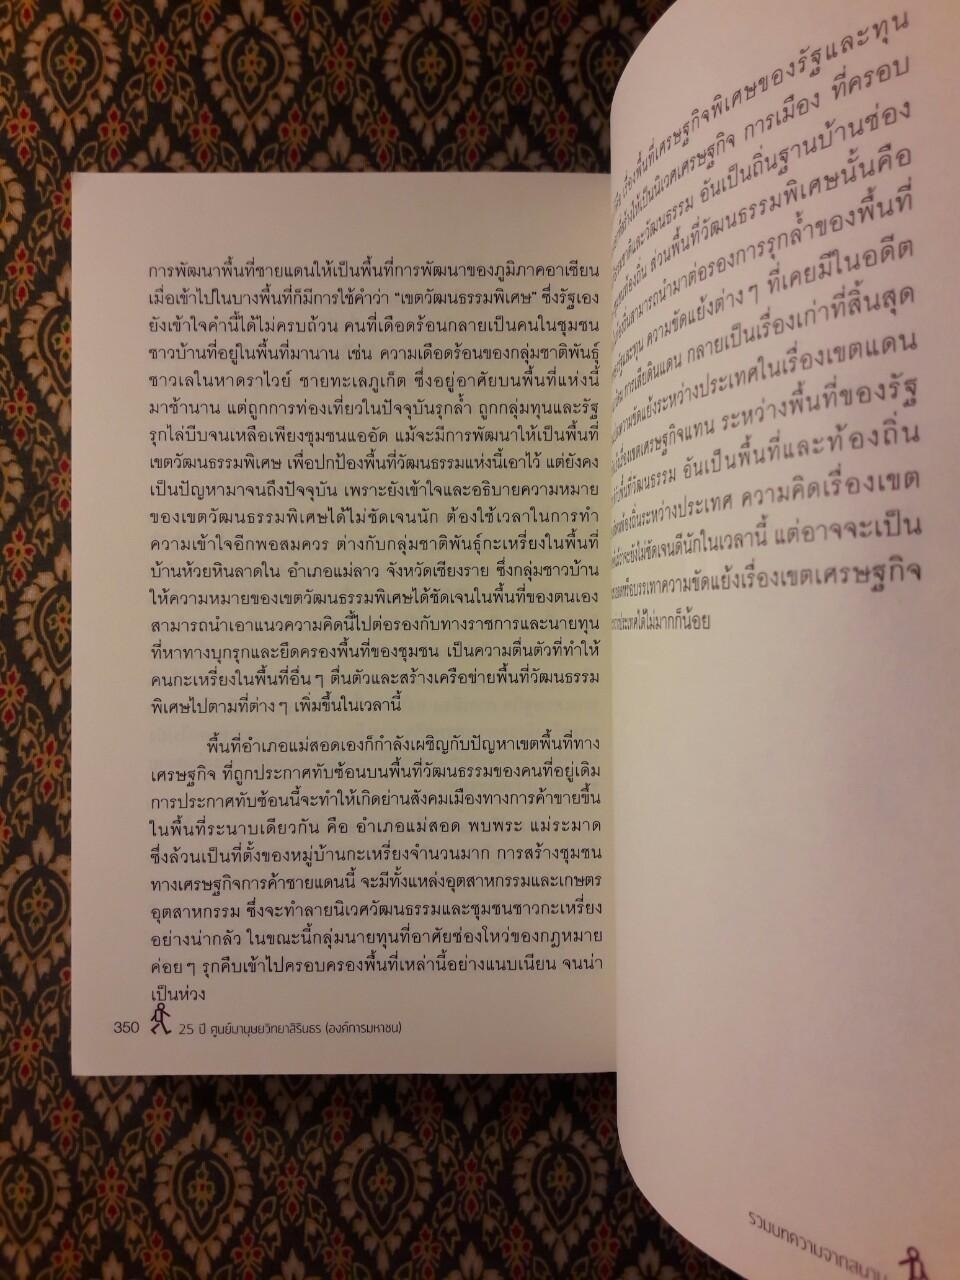 การพัฒนาพื้นที่ชายแดนให้เป็นพื้นที่การพัฒนาของภูมิภาคอาเซียน
เมื่อเข้าไปในบางพื้นที่ก็มีการใช้คำว่า “เขตวัฒนธรรมพิเศษ” ซึ่งรัฐเอง
ยังเข้าใจคำนี้ได้ไม่ครบถ้วน คนที่เดือดร้อนกลายเป็นคนในชุมชน
ชาวบ้านที่อยู่ในพื้นที่มานาน เช่น ความเดือดร้อนของกลุ่มชาติพันธุ์
ชาวเลในหาดราไวย์ ชายทะเลภูเก็ต ซึ่งอยู่อาศัยบนพื้นที่แห่งนี้
มาช้านาน แต่ถูกการท่องเที่ยวในปัจจุบันรุกล้ำ ถูกกลุ่มทุนและรัฐ
รุกไล่บีบจนเหลือเพียงชุมชนแออัด แม้จะมีการพัฒนาให้เป็นพื้นที่
เขตวัฒนธรรมพิเศษ เพื่อปกป้องพื้นที่วัฒนธรรมแห่งนี้เอาไว้ แต่ยังคง
เป็นปัญหามาจนถึงปัจจุบัน เพราะยังเข้าใจและอธิบายความหมาย
ของเขตวัฒนธรรมพิเศษได้ไม่ชัดเจนนัก ต้องใช้เวลาในการทำ
ความเข้าใจอีกพอสมควร ต่างกับกลุ่มชาติพันธุ์กะเหรี่ยงในพื้นที่
บ้านห้วยหินลาดใน อำเภอแม่ลาว จังหวัดเชียงราย ซึ่งกลุ่มชาวบ้าน
ให้ความหมายของเขตวัฒนธรรมพิเศษได้ชัดเจนในพื้นที่ของตนเอง
สามารถนำเอาแนวความคิดนี้ไปต่อรองกับทางราชการและนายทุน
ที่หาทางบุกรุกและยึดครองพื้นที่ของชุมชน เป็นความตื่นตัวที่ทำให้
คนกะเหรี่ยงในพื้นที่อื่นๆ ตื่นตัวและสร้างเครือข่ายพื้นที่วัฒนธรรม
พิเศษไปตามที่ต่างๆ เพิ่มขึ้นในเวลานี้
พื้นที่อำเภอแม่สอดเองก็กำลังเผชิญกับปัญหาเขตพื้นที่ทาง
เศรษฐกิจ ที่ถูกประกาศทับซ้อนบนพื้นที่วัฒนธรรมของคนที่อยู่เดิม
การประกาศทับซ้อนนี้จะทำให้เกิดย่านสังคมเมืองทางการค้าขายขึ้น
ในพื้นที่ระนาบเดียวกัน คือ อำเภอแม่สอด พบพระ แม่ระมาด
ซึ่งล้วนเป็นที่ตั้งของหมู่บ้านกะเหรี่ยงจำนวนมาก การสร้างชุมชน
ทางเศรษฐกิจการค้าชายแดนนี้ จะมีทั้งแหล่งอุตสาหกรรมและเกษตร
อุตสาหกรรม ซึ่งจะทำลายนิเวศวัฒนธรรมและชุมชนชาวกะเหรี่ยง
อย่างน่ากลัว ในขณะนี้กลุ่มนายทุนที่อาศัยช่องโหว่ของกฎหมาย
ค่อยๆ รุกคืบเข้าไปครอบครองพื้นที่เหล่านี้อย่างแนบเนียน จนน่า
เป็นห่วง
350 25 ปี ศูนย์มานุษยวิทยาสิรินธร (องค์การมหาชน)
เรื่องพื้นที่เศรษฐกิจพิเศษของรัฐและทุน
ให้เป็นนิเวศเศรษฐกิจ การเมือง ที่ครอบ
และวัฒนธรรม อันเป็นถิ่นฐานบ้านช่อง
ท้องถิ่น ส่วนพื้นที่วัฒนธรรมพิเศษนั้นคือ
สามารถนำมาต่อรองการรุกล้ำของพื้นที่
และทุน ความขัดแย้งต่างๆ ที่เคยมีในอดีต
การเสียดินแดน กลายเป็นเรื่องเก่าที่สิ้นสุด
ความขัดแย้งระหว่างประเทศในเรื่องเขตแดน
เรื่องเขตเศรษฐกิจแทน ระหว่างพื้นที่ของรัฐ
พื้นที่วัฒนธรรม อันเป็นพื้นที่และท้องถิ่น
ระหว่างประเทศ ความคิดเรื่องเขต
จะยังไม่ชัดเจนดีนักในเวลานี้ แต่อาจจะเป็น
หรือบรรเทาความขัดแย้งเรื่องเขตเศรษฐกิจ
ประเทศได้ไม่มากก็น้อย
รวมบทความจากสนาม